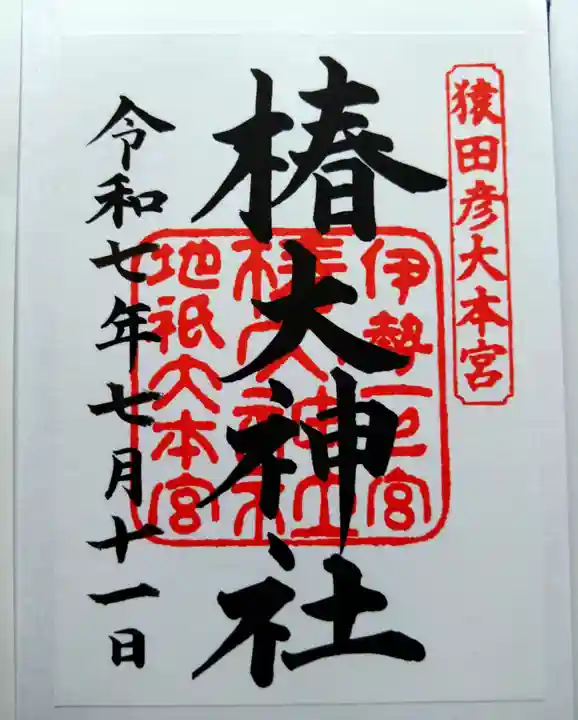 猿田彦大本宮
伊勢一之宮
椿大神社
地祇大本宮
椿大神社
令和七年七月十一日